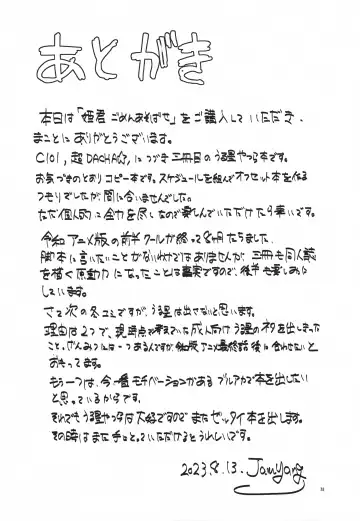 あとがき
本日は「姫君ごめんあそばせ」をご購入していただき、
まことにありがとうございます。
C101,超DACHA☆,につづき三冊目のうる星やつら本です。
お気づきのとおりコピー本です。スケジュールを組んでオフセット本を作る
つもりでしたが、間に合いませんでした。
ただ個人的に全力を尽くしたので楽しんでいただけたら幸いです。
令和アニメ版の前半クールが終って2ヶ月たちました、
脚本に言いたいことがないわけではありませんが、三冊も同人誌
を描く原動力になったことは事実ですので、後半も楽しみに
しています。
さて次の冬コミですが、うる星は出さないと思います。
理由は2つで、現時点で考えていた成人向けうる星のネタを出しきった
こと。げんみつには一つあるんですが、令和版アニメ最終話後に合わせたいと
おもってます。
もう一つは、今一番モチベーションがあるブルアカで本を出したい
と思っているからです。
それでもうる星やつらは大好きですのでまたゼッタイ本を出します。
その時はまた手にとっていただけるとうれしいです。
2023.8.13. JamYang